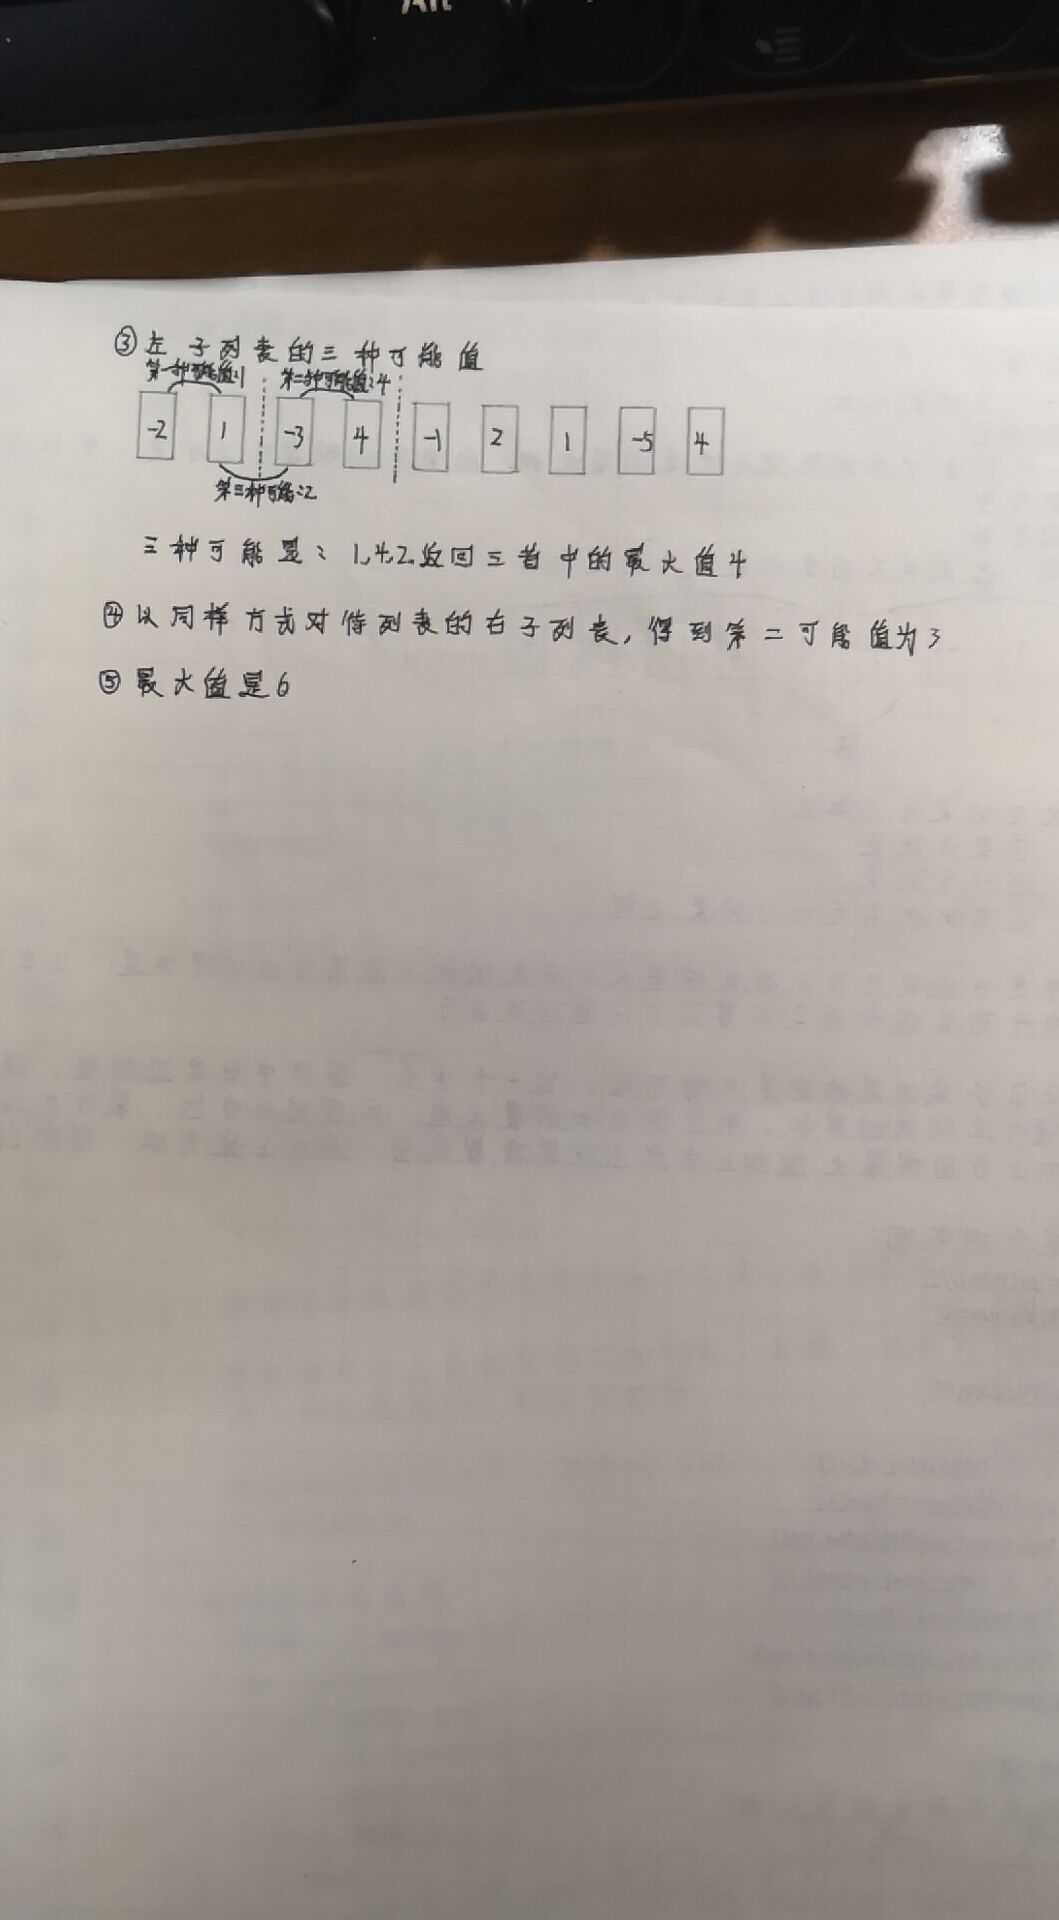 Alt
③左子列表的三种可能值
第一种可能值:1 第二种可能值:4
-2 1 -3 4 -1 2 1 -5 4
第三种可能:2
三种可能是:1,4,2.返回三者中的最大值4
④以同样方式对待列表的右子列表,得到第二可能值为3
⑤最大值是6